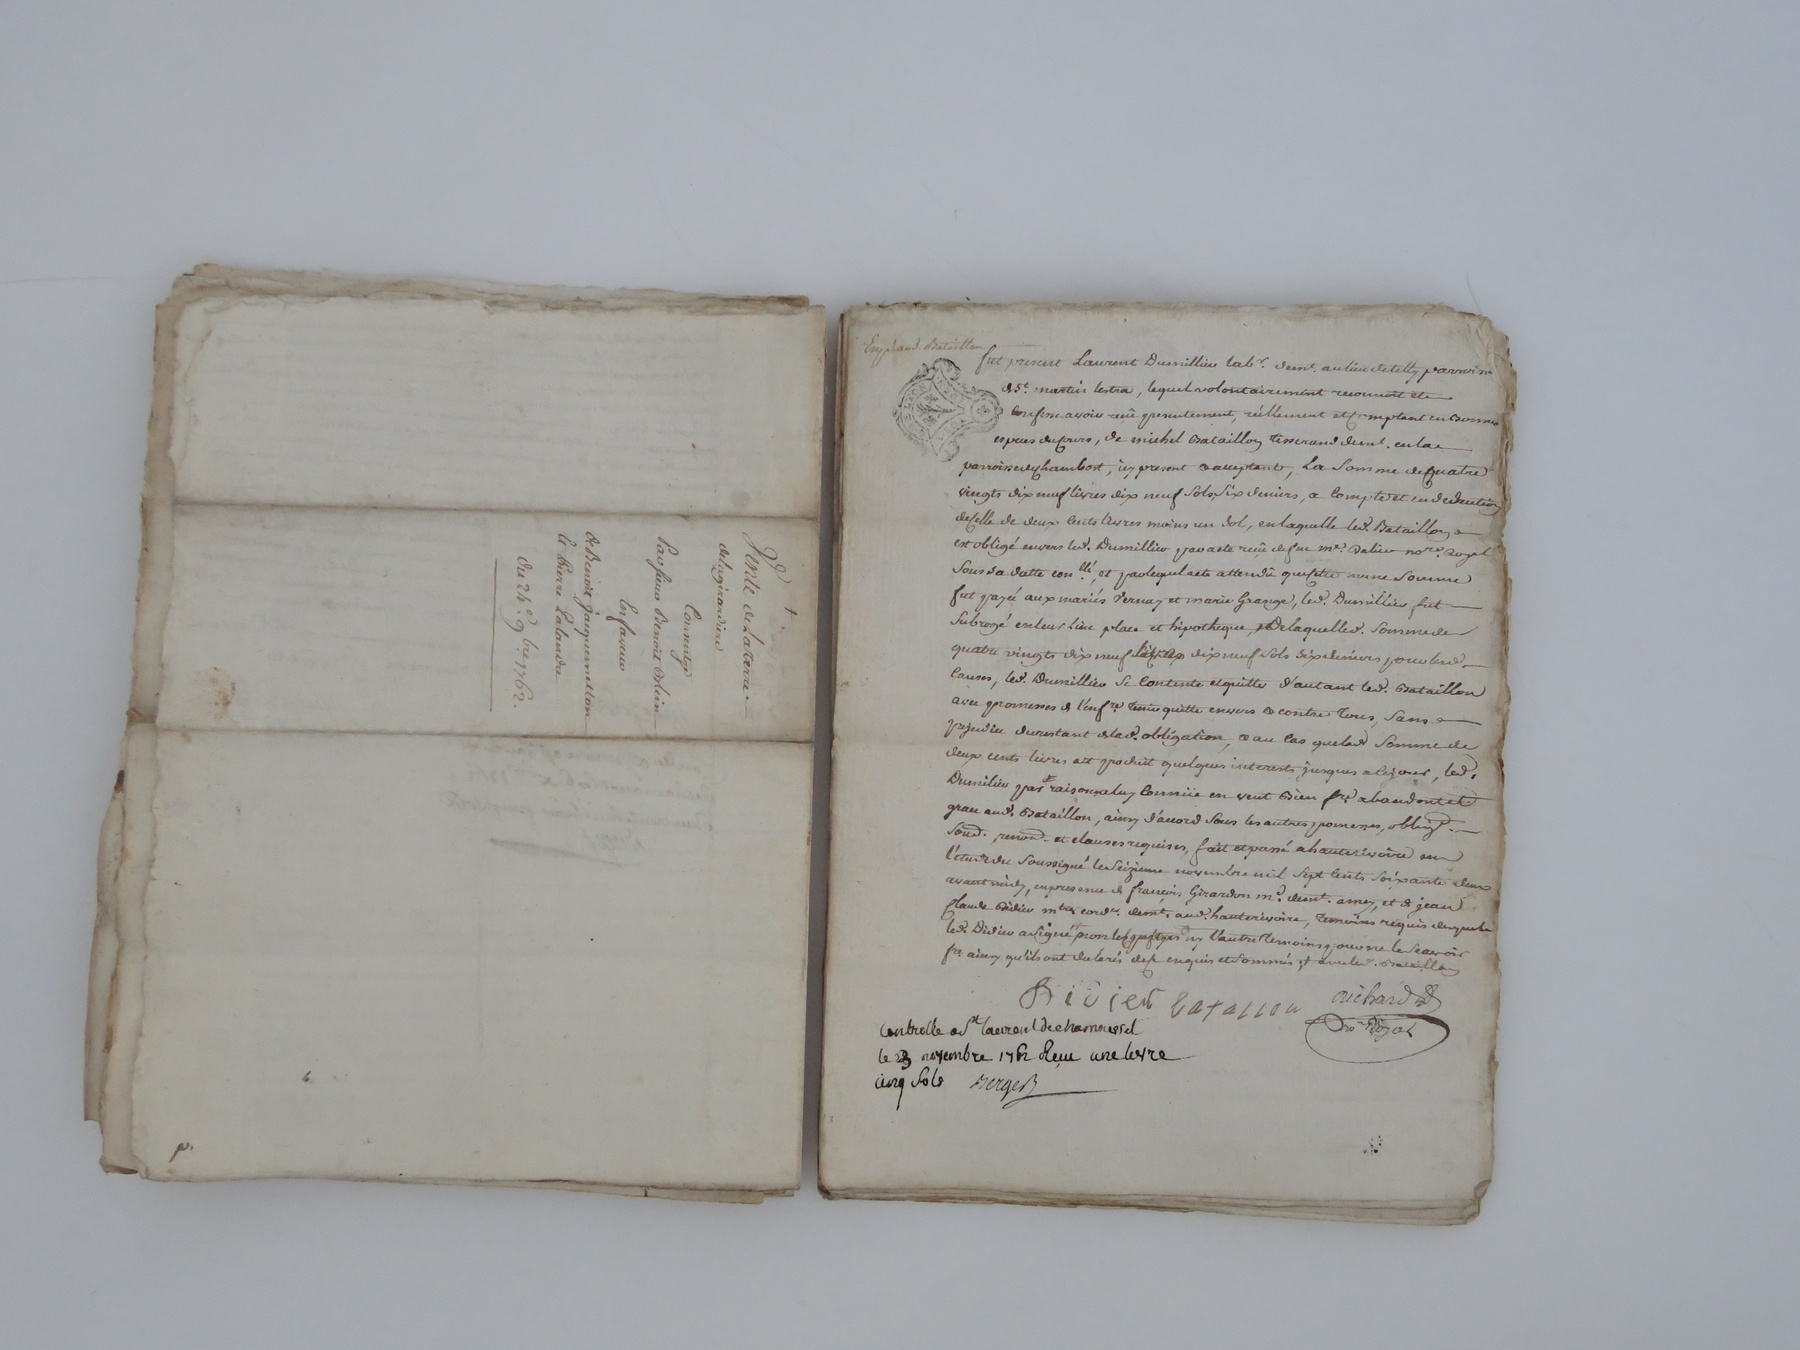 Vente de La terre
de la girardiere
Comuny
Par sieur Benoit
En faveur
de Benoit Jacquemetton
& Pierre Lalande
du 24e. 9bre 1762.
p.
Exp. au d. Bataillon
fut present Laurent Dumillieu labr. demt. au lieu de parroisse
de St. martin lestra, lequel volontairement reconnoit et
confesse avoir reçû presentement, réellement et comptant en bonnes
especes du cours, de michel Bataillon tisserand demt. en la
parroisse de chambost, icy present & acceptant, La Somme de quatre
vingts dix neuf livres dix neuf Sols Six deniers, a compte et en deduction
de celle de deux Cents livres moins un Sol, en laquelle led. Bataillon
est obligé envers led. Dumillieu par acte reçû de feu me. nore. royal
Sous Sa datte conllé, et par lequel acte attendû que cette meme Somme
fut payé aux mariés Vernay et marie Grange, led. Dumillieu fut
Subrogé en leur lieu place et hipotheque, de laquelle d. Somme de
quatre vingts dix neuf livres dix neuf Sols Six deniers pour lesd.
Causes, led. Dumillieu Se Contente et quitte d'autant led. Bataillon
avec promesses de l'en fre. tenir quitte envers & contre Tous, Sans
prejudice du restant de lad. obligation, & au Cas que lad. Somme de
deux cents livres ait produit quelques interests jusques a ce jour, led.
Dumillieu par raison a luy Connüe en veut bien fre. abandon et
grace aud. Bataillon, ainsy d'accord Sous les autres promesses, oblig.
Soud. renond. et clauses requises, fait et passé a hauterivoire en
l'étude du Soussigné le Seizieme novembre mil Sept Cents Soixante deux
avant midy, en presence de françois Girardon md. demt. a , et de jean
Claude Didieu mtre cordr. demt. aud. hauterivoire, temoins requis desquels
led. Didieu a Signé non les parties ny l'autre temoins pour ne le Scavoir
fre. ainsy qu'ils ont declarés de ce enquis et Sommés et avec led. Bataillon
Didieu bataillon Richard
nore. Royal
Controlle a St laurent de chamousset
le 23 novembre 1762 Reçu une livre
cinq Sols Berger